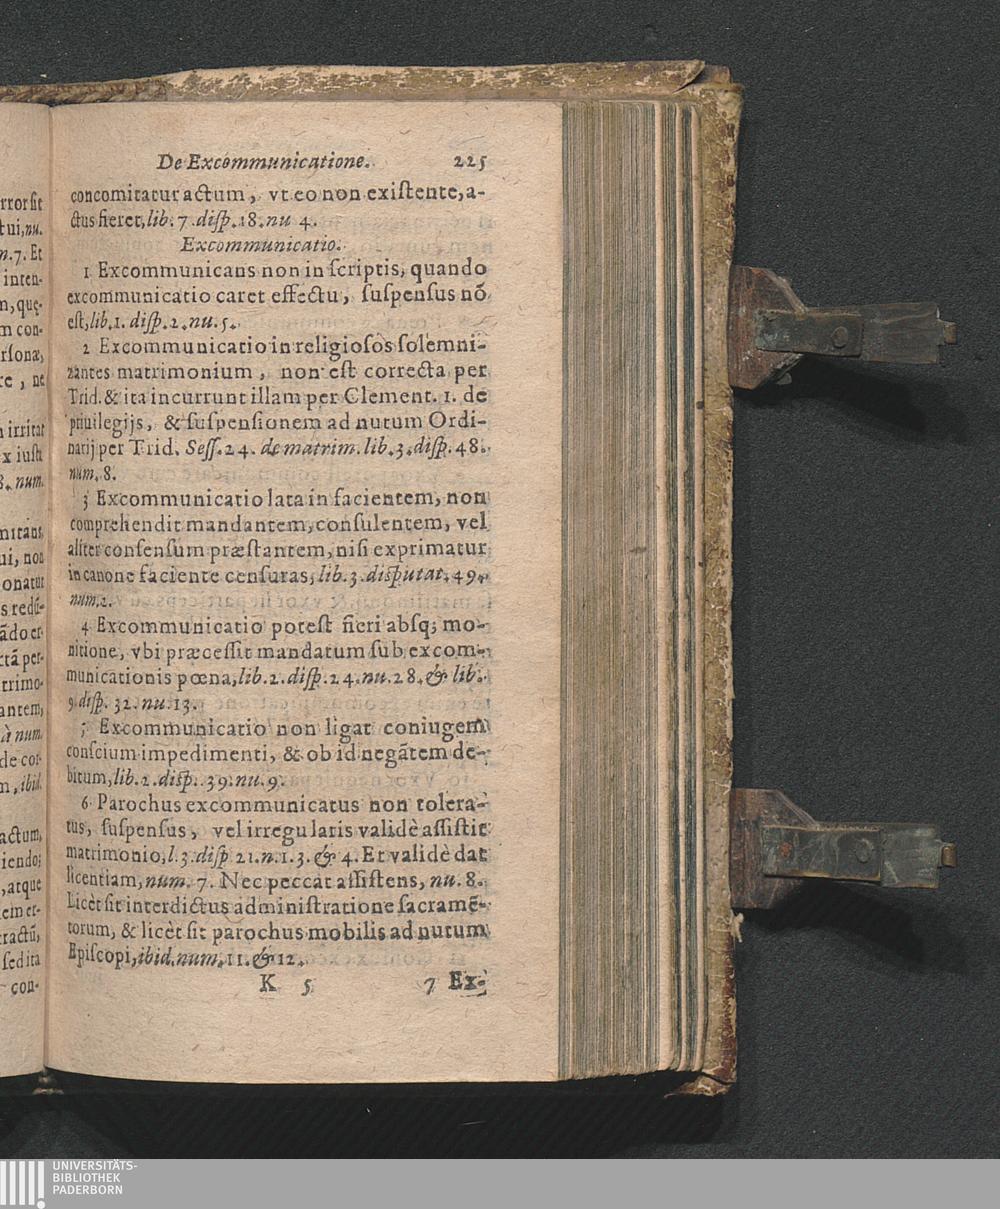 De Excommunicatione. 225
concomitatur actum, vt eo non existente, a-
ctus fieret, lib. 7. disp. 18. nu 4.
Excommunicatio.
1 Excommunicans non in scriptis, quando
excommunicatio caret effectu, suspensus nõ
est, lib. 1. disp. 2. nu. 5.
2 Excommunicatio in religiosos solemni-
zantes matrimonium, non est correcta per
Trid. & ita incurrunt illam per Clement. 1. de
priuilegijs, & suspensionem ad nutum Ordi-
narij per Trid. Sess. 24. de matrim. lib. 3. disp. 48.
num. 8.
3 Excommunicatio lata in facientem, non
comprehendit mandantem, consulentem, vel
aliter consensum præstantem, nisi exprimatur
in canone faciente censuras, lib. 3. disputat. 49.
num. 2.
4 Excommunicatio potest fieri absq; mo-
nitione, vbi præcessit mandatum sub excom-
municationis pœna, lib. 2. disp. 24. nu. 28. & lib.
9 disp. 32. nu. 13.
5 Excommunicatio non ligat coniugem
conscium impedimenti, & ob id negãtem de-
bitum, lib. 2. disp. 39. nu. 9.
6 Parochus excommunicatus non tolera-
tus, suspensus, vel irregularis validè assistit
matrimonio, l. 3. disp 21. n. 1. 3. & 4. Et validè dat
licentiam, num. 7. Nec peccat assistens, nu. 8.
Licèt sit interdictus administratione sacramẽ-
torum, & licèt sit parochus mobilis ad nutum
Episcopi, ibid. num. 11. & 12.
K 5 7 Ex-
rror sit
tui, nu.
n. 7. Et
inten-
m, quę-
m con-
rsonæ,
re, ne
irritat
x iusti
8. num.
mitans
ui, non
onatur
s redũ-
ãdo er-
ctã per-
trimo-
antem,
à num.
de cor-
m, ibid.
actum,
iendo;
, atque
em et-
tractũ,
sed ita
con-
UNIVERSITÄTS-
BIBLIOTHEK
PADERBORN